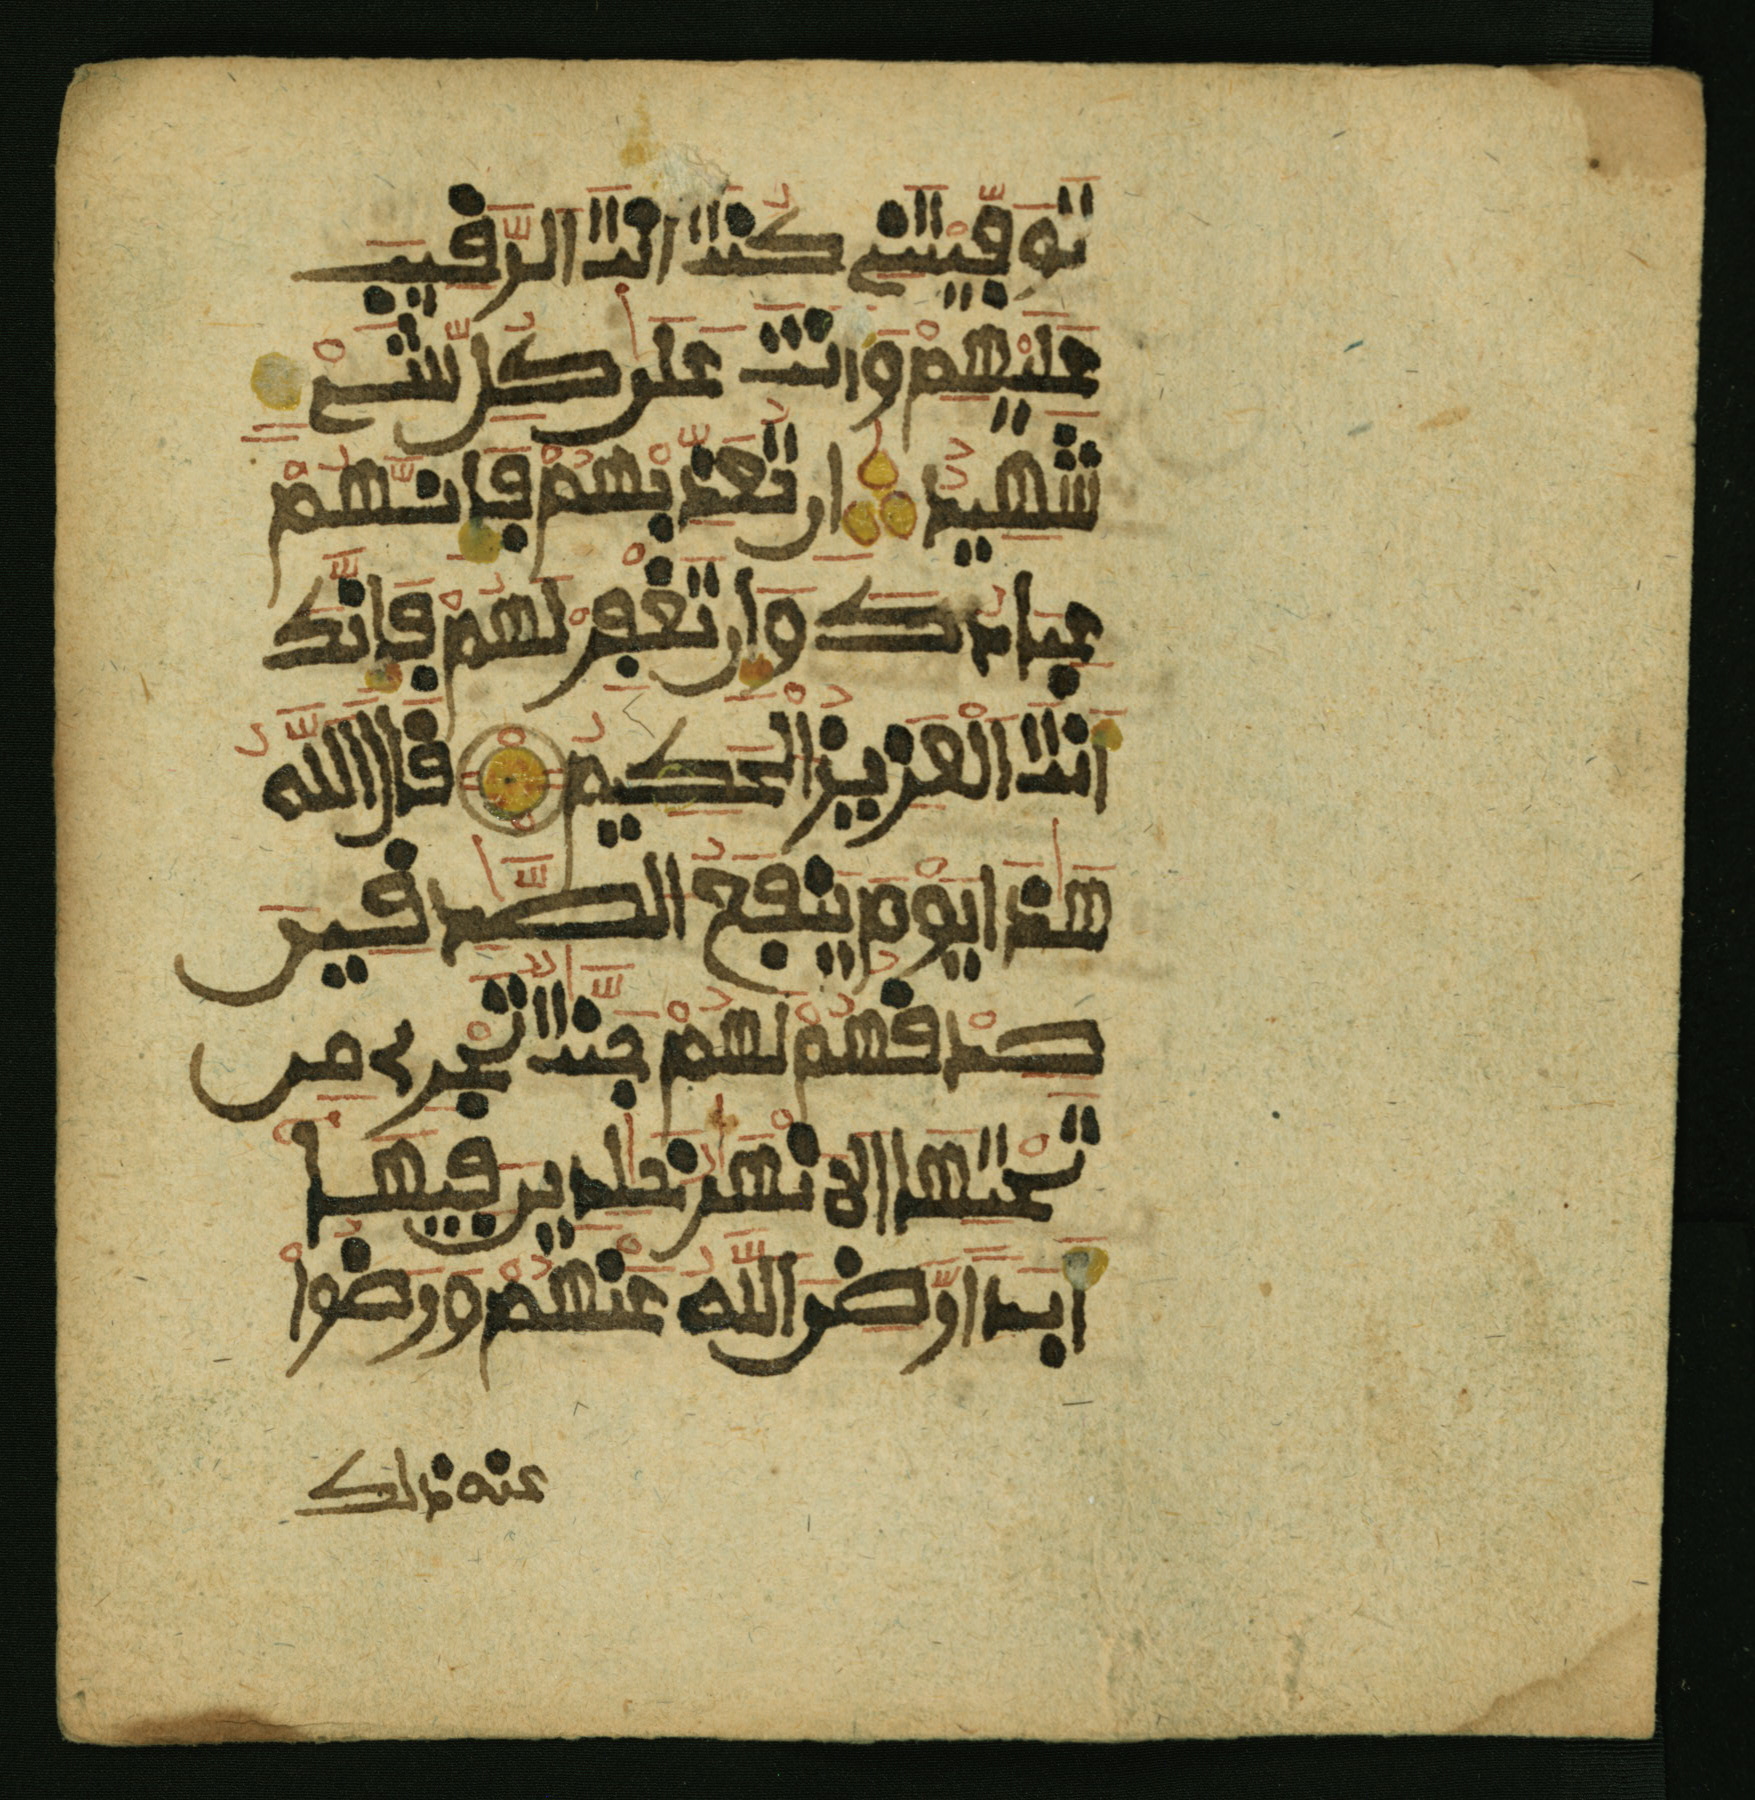 تَوَفَّيْتَنِي كُنتَ أَنتَ ٱلرَّقِيبَ
عَلَيْهِمْ وَأَنتَ عَلَىٰ كُلِّ شَيْءٍ
شَهِيدٌ إِن تُعَذِّبْهُمْ فَإِنَّهُمْ
عِبَادُكَ وَإِن تَغْفِرْ لَهُمْ فَإِنَّكَ
أَنتَ ٱلْعَزِيزُ ٱلْحَكِيمُ قَالَ ٱللَّهُ
هَٰذَا يَوْمَ يَنفَعُ ٱلصَّٰدِقِينَ
صِدْقُهُمْ لَهُمْ جَنَّٰتٌ تَجْرِي مِن
تَحْتِهَا ٱلْأَنْهَٰرُ خَٰلِدِينَ فِيهَا
أَبَدًا رَّضِيَ ٱللَّهُ عَنْهُمْ وَرَضُوا
عنه ذلك